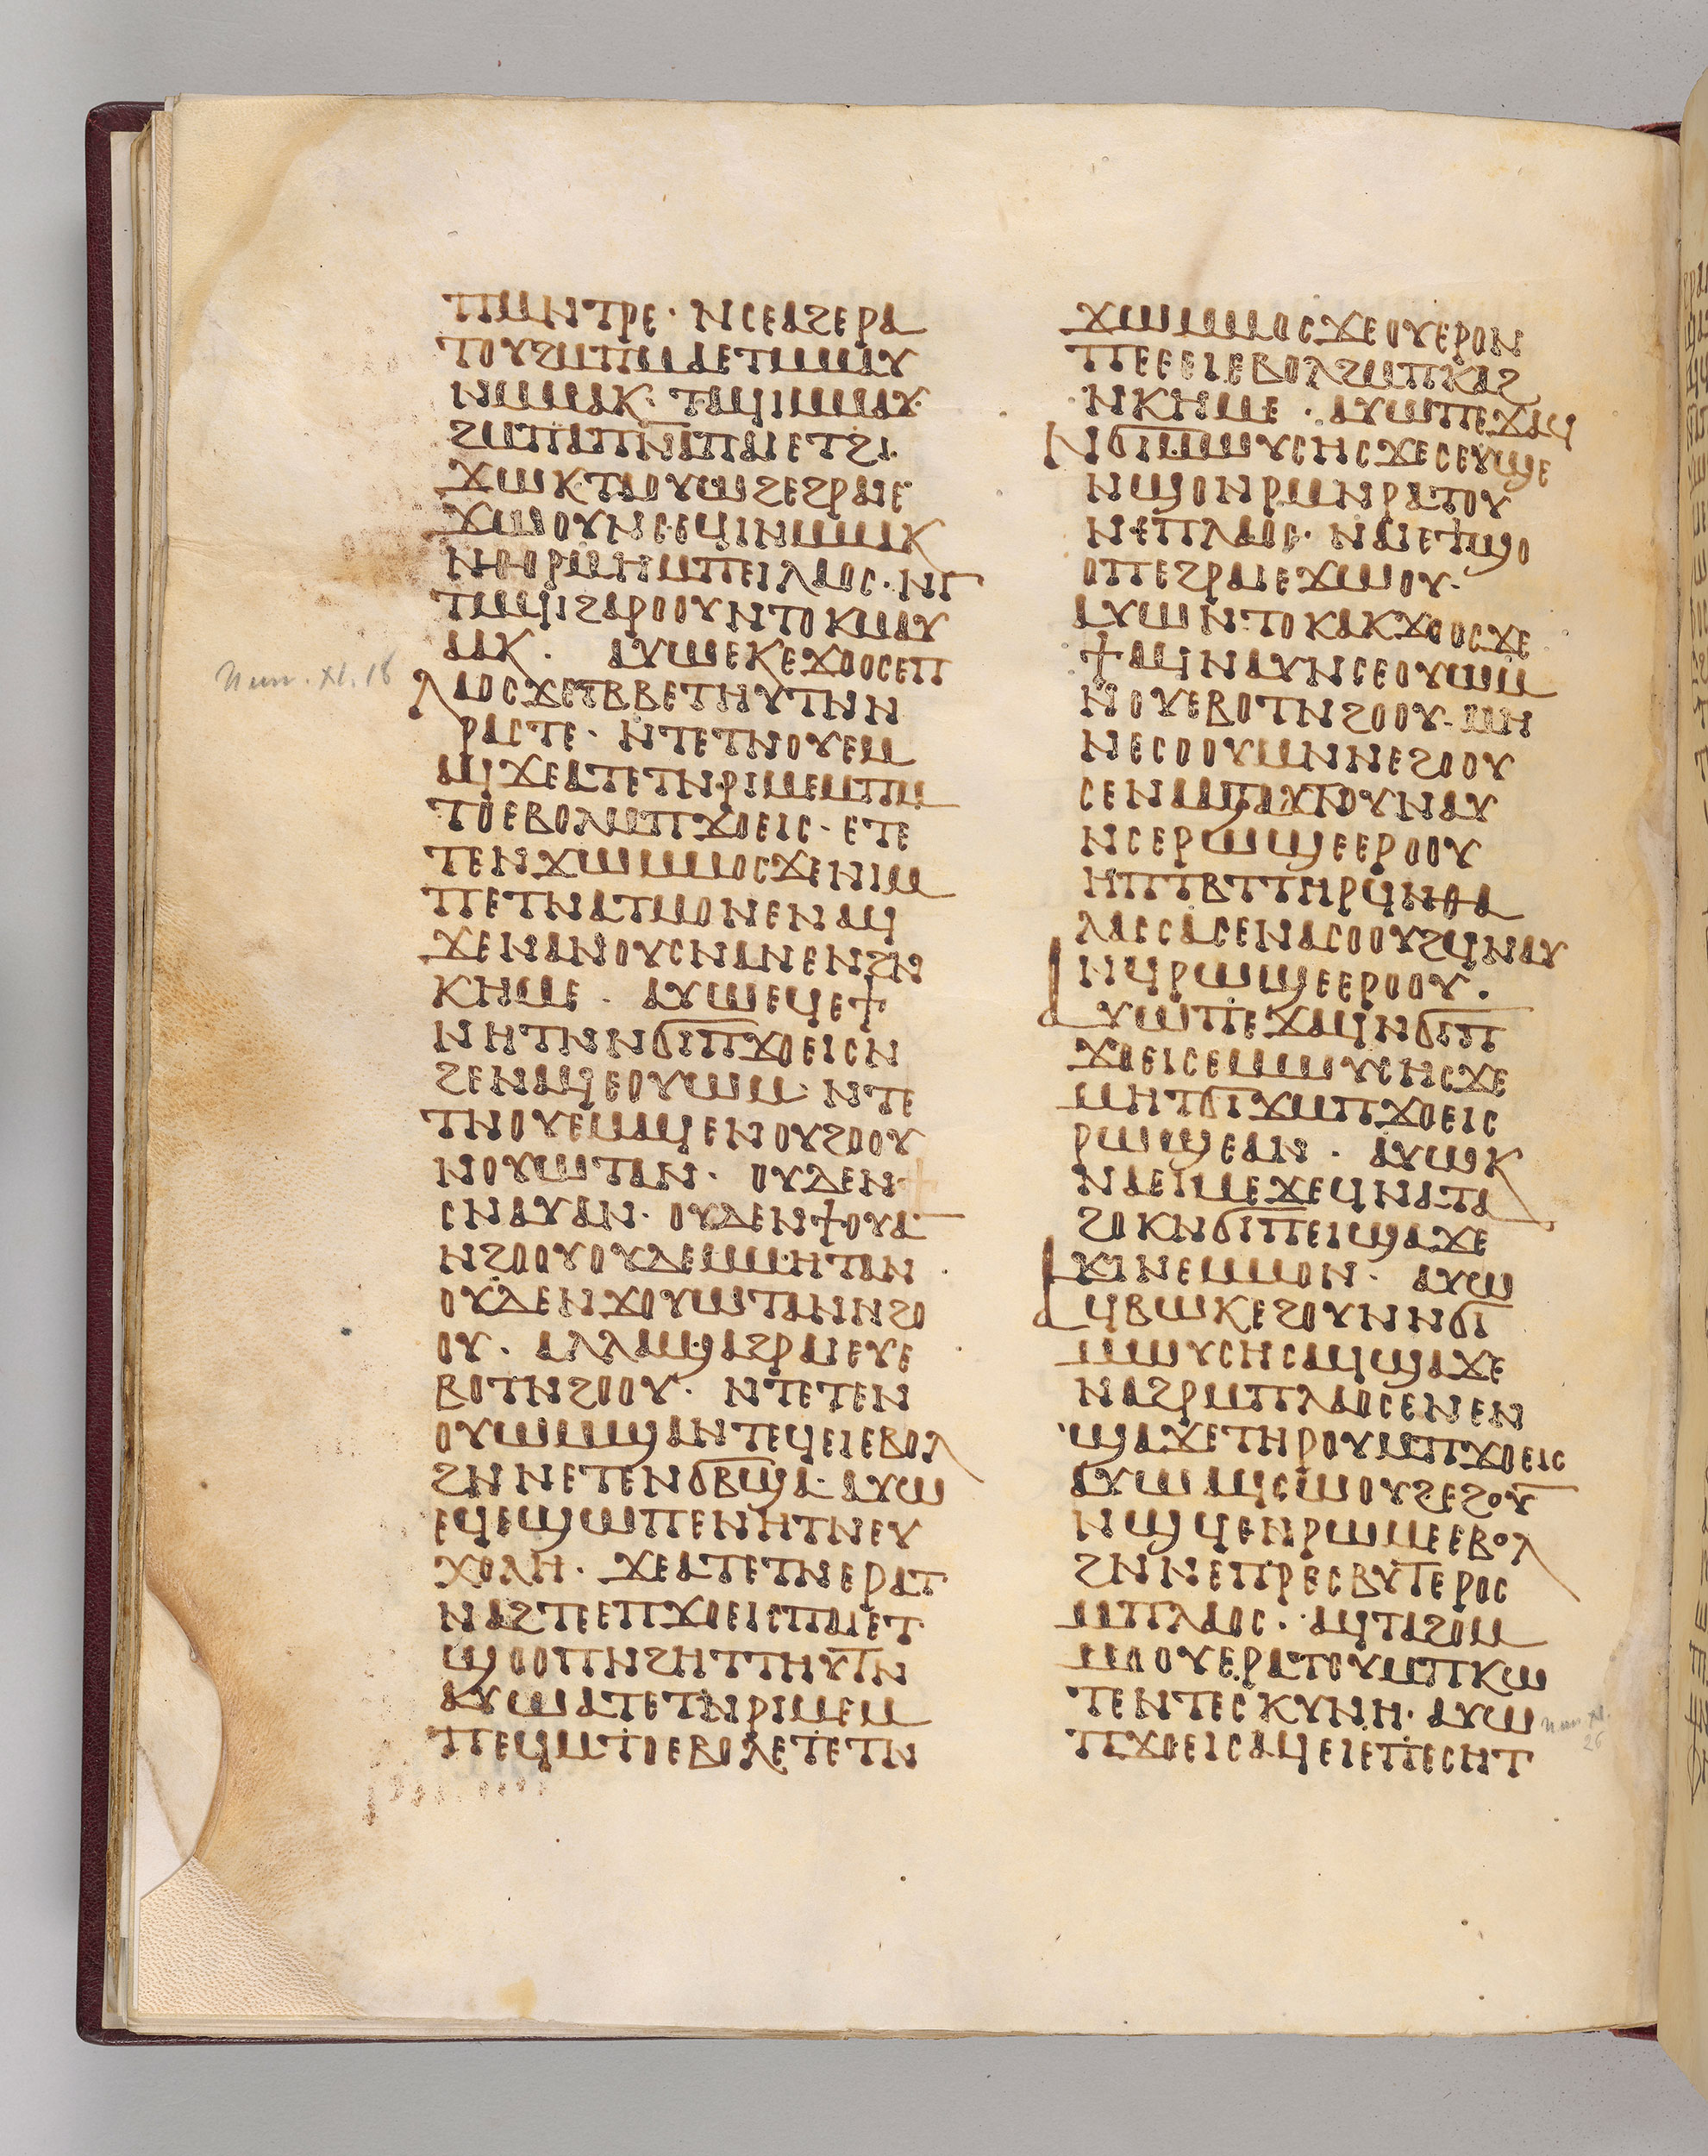 ⲡⲙⲛⲧⲣⲉ · ⲛⲥⲉⲁϩⲉⲣⲁ
ⲧⲟⲩϩⲙⲡⲙⲁⲉⲧⲙⲙⲁⲩ
ⲛⲙⲙⲁⲕ · ⲧⲁϥⲓⲙⲙⲁⲩ ·
ϩⲙⲡⲁⲡⲛ̅ⲁ̅ⲡⲁⲓⲉⲧϩⲓ ·
ϫⲱⲕⲧⲁⲟⲩⲱϩⲉϩⲣⲁⲓⲉ
ϫⲱⲟⲩⲛⲥⲉϥⲓⲛⲙⲙⲁⲕ
ⲛⲑⲟⲣⲙⲏⲙⲡⲉⲓⲗⲁⲟⲥ · ⲛⲅ
ⲧⲙϥⲓϩⲁⲣⲟⲟⲩⲛⲧⲟⲕⲙⲁⲩ
ⲁⲁⲕ · ⲁⲩⲱⲉⲕⲉϫⲟⲟⲥⲉⲡ
Num. XI. 18
ⲗⲁⲟⲥϫⲉⲧⲃⲃⲉⲧⲏⲩⲧⲛⲛ
ⲣⲁⲥⲧⲉ · ⲛⲧⲉⲧⲛⲟⲩⲉⲙ
ⲁϥϫⲉⲁⲧⲉⲧⲛⲣⲓⲙⲉⲙⲡⲙ
ⲧⲟⲉⲃⲟⲗⲙⲡϫⲟⲉⲓⲥ · ⲉⲧⲉ
ⲧⲉⲛϫⲱⲙⲙⲟⲥϫⲉⲛⲓⲙ
ⲡⲉⲧⲛⲁⲧⲙⲟⲛⲉⲛⲁϥ
ϫⲉⲛⲁⲛⲟⲩⲥⲛⲁⲛⲉⲛϩⲛ
ⲕⲏⲙⲉ · ⲁⲩⲱⲉϥⲉϯ
ⲛⲏⲧⲛⲛϭⲓⲡϫⲟⲉⲓⲥⲛ
ϩⲉⲛⲁϥⲉⲟⲩⲱⲙ · ⲛⲧⲉ
ⲧⲛⲟⲩⲉⲙⲁϥⲉⲛⲟⲩϩⲟⲟⲩ
ⲛⲟⲩⲱⲧⲁⲛ · ⲟⲩⲇⲉⲛ
ⲥⲛⲁⲩⲁⲛ · ⲟⲩⲇⲉⲛϯⲟⲩⲁ
ⲛϩⲟⲟⲩⲟⲩⲇⲉⲙⲙⲏⲧⲁⲛ ·
ⲟⲩⲇⲉⲛϫⲟⲩⲱⲧⲁⲛⲛϩⲟ
ⲟⲩ · ⲁⲗⲗⲁϣⲁϩⲣⲁⲓⲉⲩⲉ
ⲃⲟⲧⲛϩⲟⲟⲩ · ⲛⲧⲉⲧⲉⲛ
ⲟⲩⲱⲙϣⲁⲛⲧⲉϥⲉⲓⲉⲃⲟⲗ
ϩⲛⲛⲉⲧⲉⲛϭⲃϣⲁ · ⲁⲩⲱ
ⲉϥⲉϣⲱⲡⲉⲛⲏⲧⲛⲉⲩ
ⲭⲟⲗⲏ · ϫⲉⲁⲧⲉⲧⲛⲉⲣⲁⲧ
ⲛⲁϩⲧⲉⲉⲡϫⲟⲉⲓⲥⲡⲁⲓⲉⲧ
ϣⲟⲟⲡⲛϩⲏⲧⲧⲏⲩⲧⲛ
ⲁⲩⲱⲁⲧⲉⲧⲛⲣⲓⲙⲉⲙ
ⲡⲉϥⲙⲧⲟⲉⲃⲟⲗⲉⲧⲉⲧⲛ
ϫⲱⲙⲙⲟⲥϫⲉⲟⲩⲉⲣⲟⲛ
ⲡⲉⲉⲉⲓⲉⲃⲟⲗϩⲙⲡⲕⲁϩ
ⲛⲕⲏⲙⲉ · ⲁⲩⲱⲡⲉϫⲁϥ
ⲛϭⲓⲙⲱⲩⲥⲏⲥϫⲉⲥⲉⲩϣⲉ
ⲛϣⲟⲛⲣⲙⲛⲣⲁⲧⲟⲩ
ⲛⲉⲡⲗⲁⲟⲥ · ⲛⲁⲓⲉϯϣⲟ
ⲟⲡⲉϩⲣⲁⲓⲉϫⲱⲟⲩ ·
ⲁⲩⲱⲛⲧⲟⲕⲁⲕϫⲟⲟⲥϫⲉ
ϯⲁϥⲛⲁⲩⲛⲥⲉⲟⲩⲱⲙ
ⲛⲟⲩⲉⲃⲟⲧⲛϩⲟⲟⲩ · ⲙⲏ
ⲛⲉⲥⲟⲟⲩⲙⲛⲛⲉϩⲟⲟⲩ
ⲥⲉⲛⲁϣⲁⲁⲧⲟⲩⲛⲁⲩ
ⲛⲥⲉⲣⲱϣⲉⲉⲣⲟⲟⲩ
ⲏⲡⲧⲃⲧⲧⲏⲣϥⲛⲑⲁ
ⲗⲁⲥⲥⲁⲥⲉⲛⲁⲥⲟⲟⲩϩϥⲛⲁⲩ
ⲛϥⲣⲱϣⲉⲉⲣⲟⲟⲩ ·
ⲁⲩⲱⲡⲉϫⲁϥⲛϭⲓⲡ
ϫⲟⲉⲓⲥⲉⲙⲱⲩⲥⲏⲥϫⲉ
ⲙⲏⲧϭⲓϫⲙⲡϫⲟⲉⲓⲥ
ⲣⲱϣⲉⲁⲛ · ⲁⲩⲱⲕ
ⲛⲁⲉⲓⲙⲉϫⲉϥⲛⲁⲧⲁ
ϩⲟⲕⲛϭⲓⲡⲉⲓϣⲁϫⲉ
ϫⲓⲛⲉⲙⲙⲟⲛ · ⲁⲩⲱ
ⲁϥⲃⲱⲕⲉϩⲟⲩⲛⲛϭⲓ
ⲙⲱⲩⲥⲏⲥⲁϥϣⲁϫⲉ
ⲛⲁϩⲣⲙⲡⲗⲁⲟⲥⲉⲛⲉⲛ
ϣⲁϫⲉⲧⲏⲣⲟⲩⲙⲡϫⲟⲉⲓⲥ
ⲁⲩⲱⲁϥⲥⲱⲟⲩϩⲉϩⲟⲩ
ⲛϣϥⲉⲛⲣⲱⲙⲉⲉⲃⲟⲗ
ϩⲛⲛⲉⲡⲣⲉⲥⲃⲩⲧⲉⲣⲟⲥ
ⲙⲡⲗⲁⲟⲥ · ⲁϥⲧⲁϩⲟⲙ
ⲙⲟⲟⲩⲉⲣⲁⲧⲟⲩⲙⲡⲕⲱ
ⲧⲉⲛⲧⲉⲥⲕⲩⲛⲏ · ⲁⲩⲱ
Num XI. 26
ⲡϫⲟⲉⲓⲥⲁϥⲉⲓⲉⲡⲉⲥⲏⲧ